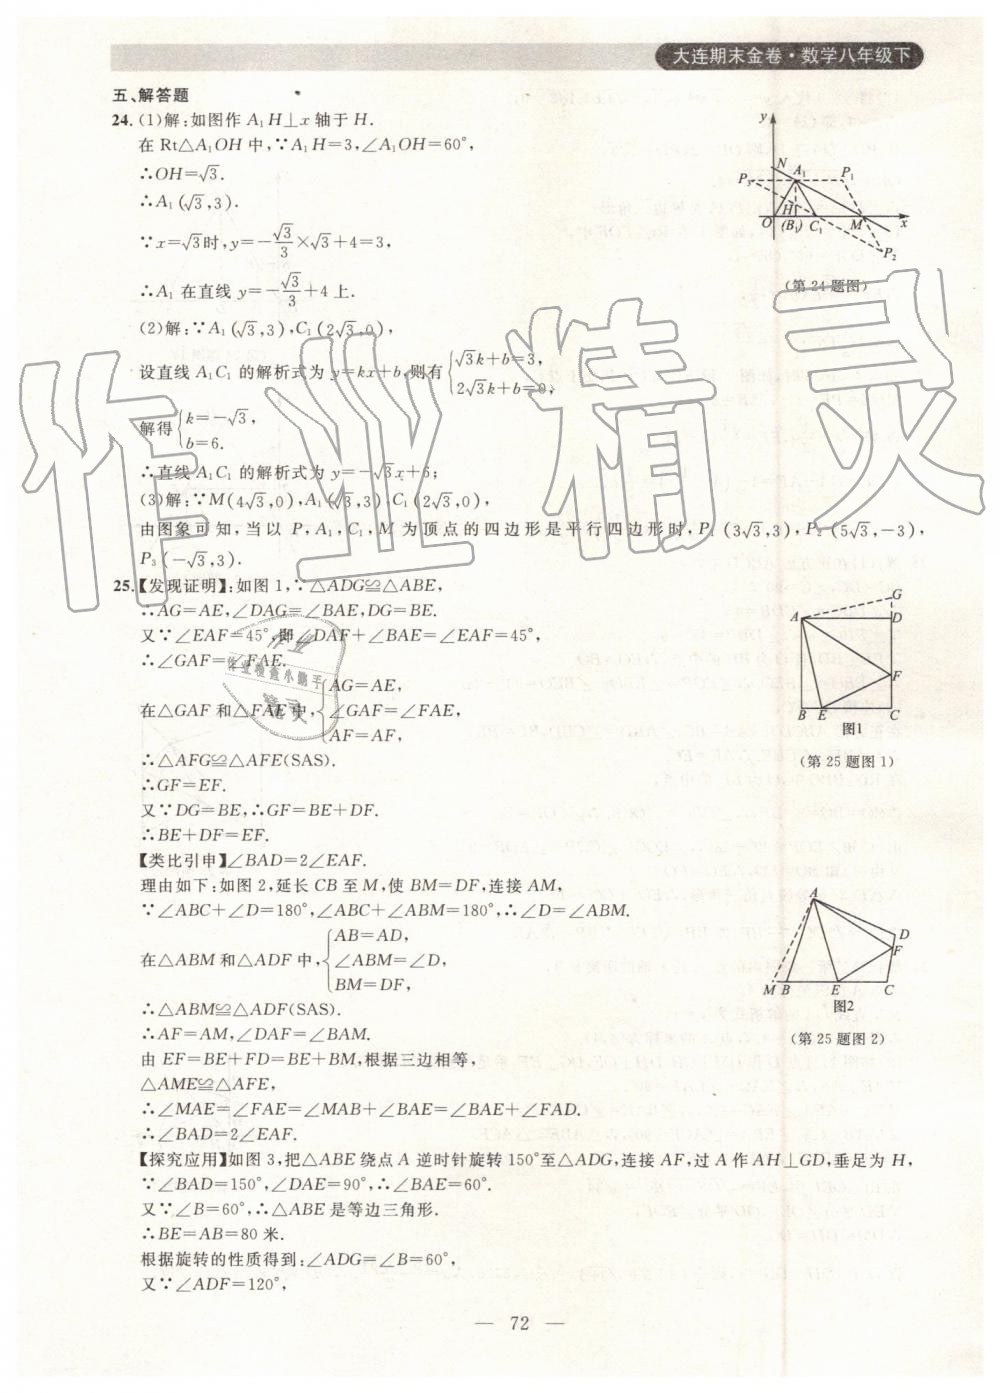 大连期末金卷·数学八年级下
五、解答题
24.(1)解:如图作 A₁H⊥x 轴于 H.
在 Rt△A₁OH 中,∵A₁H=3,∠A₁OH=60°,
∴OH=√3.
∴A₁(√3,3).
∵x=√3时,y=-√3/3×√3+4=3,
∴A₁ 在直线 y=-√3/3x+4 上.
(2)解:∵A₁(√3,3),C₁(2√3,0),
设直线 A₁C₁ 的解析式为 y=kx+b,则有{√3k+b=3,
2√3k+b=0,
解得{k=-√3,
b=6.
∴直线 A₁C₁ 的解析式为 y=-√3x+6;
(3)解:∵M(4√3,0),A₁(√3,3),C₁(2√3,0),
由图象可知,当以 P,A₁,C₁,M 为顶点的四边形是平行四边形时,P₁(3√3,3),P₂(5√3,-3),
P₃(-√3,3).
y
N
A₁
P₃
P₁
H
O
(B₁)
C₁
M
x
P₂
(第 24 题图)
25.【发现证明】:如图 1,∵△ADG≌△ABE,
∴AG=AE,∠DAG=∠BAE,DG=BE.
又∵∠EAF=45°,即∠DAF+∠BAE=∠EAF=45°,
∴∠GAF=∠FAE.
在△GAF 和△FAE 中,{AG=AE,
∠GAF=∠FAE,
AF=AF,
∴△AFG≌△AFE(SAS).
∴GF=EF.
又∵DG=BE,∴GF=BE+DF.
∴BE+DF=EF.
G
A
D
F
B
E
C
图1
(第 25 题图 1)
【类比引申】∠BAD=2∠EAF.
理由如下:如图 2,延长 CB 至 M,使 BM=DF,连接 AM,
∵∠ABC+∠D=180°,∠ABC+∠ABM=180°,∴∠D=∠ABM.
在△ABM 和△ADF 中,{AB=AD,
∠ABM=∠D,
BM=DF,
∴△ABM≌△ADF(SAS).
∴AF=AM,∠DAF=∠BAM.
由 EF=BE+FD=BE+BM,根据三边相等,
△AME≌△AFE,
∴∠MAE=∠FAE=∠MAB+∠BAE=∠BAE+∠FAD.
∴∠BAD=2∠EAF.
A
D
F
M
B
E
C
图2
(第 25 题图 2)
【探究应用】如图 3,把△ABE 绕点 A 逆时针旋转 150°至△ADG,连接 AF,过 A 作 AH⊥GD,垂足为 H,
∵∠BAD=150°,∠DAE=90°,∴∠BAE=60°.
又∵∠B=60°,∴△ABE 是等边三角形.
∴BE=AB=80 米.
根据旋转的性质得到:∠ADG=∠B=60°,
又∵∠ADF=120°,
— 72 —
作业精灵
作业
作业检查小助手
精灵